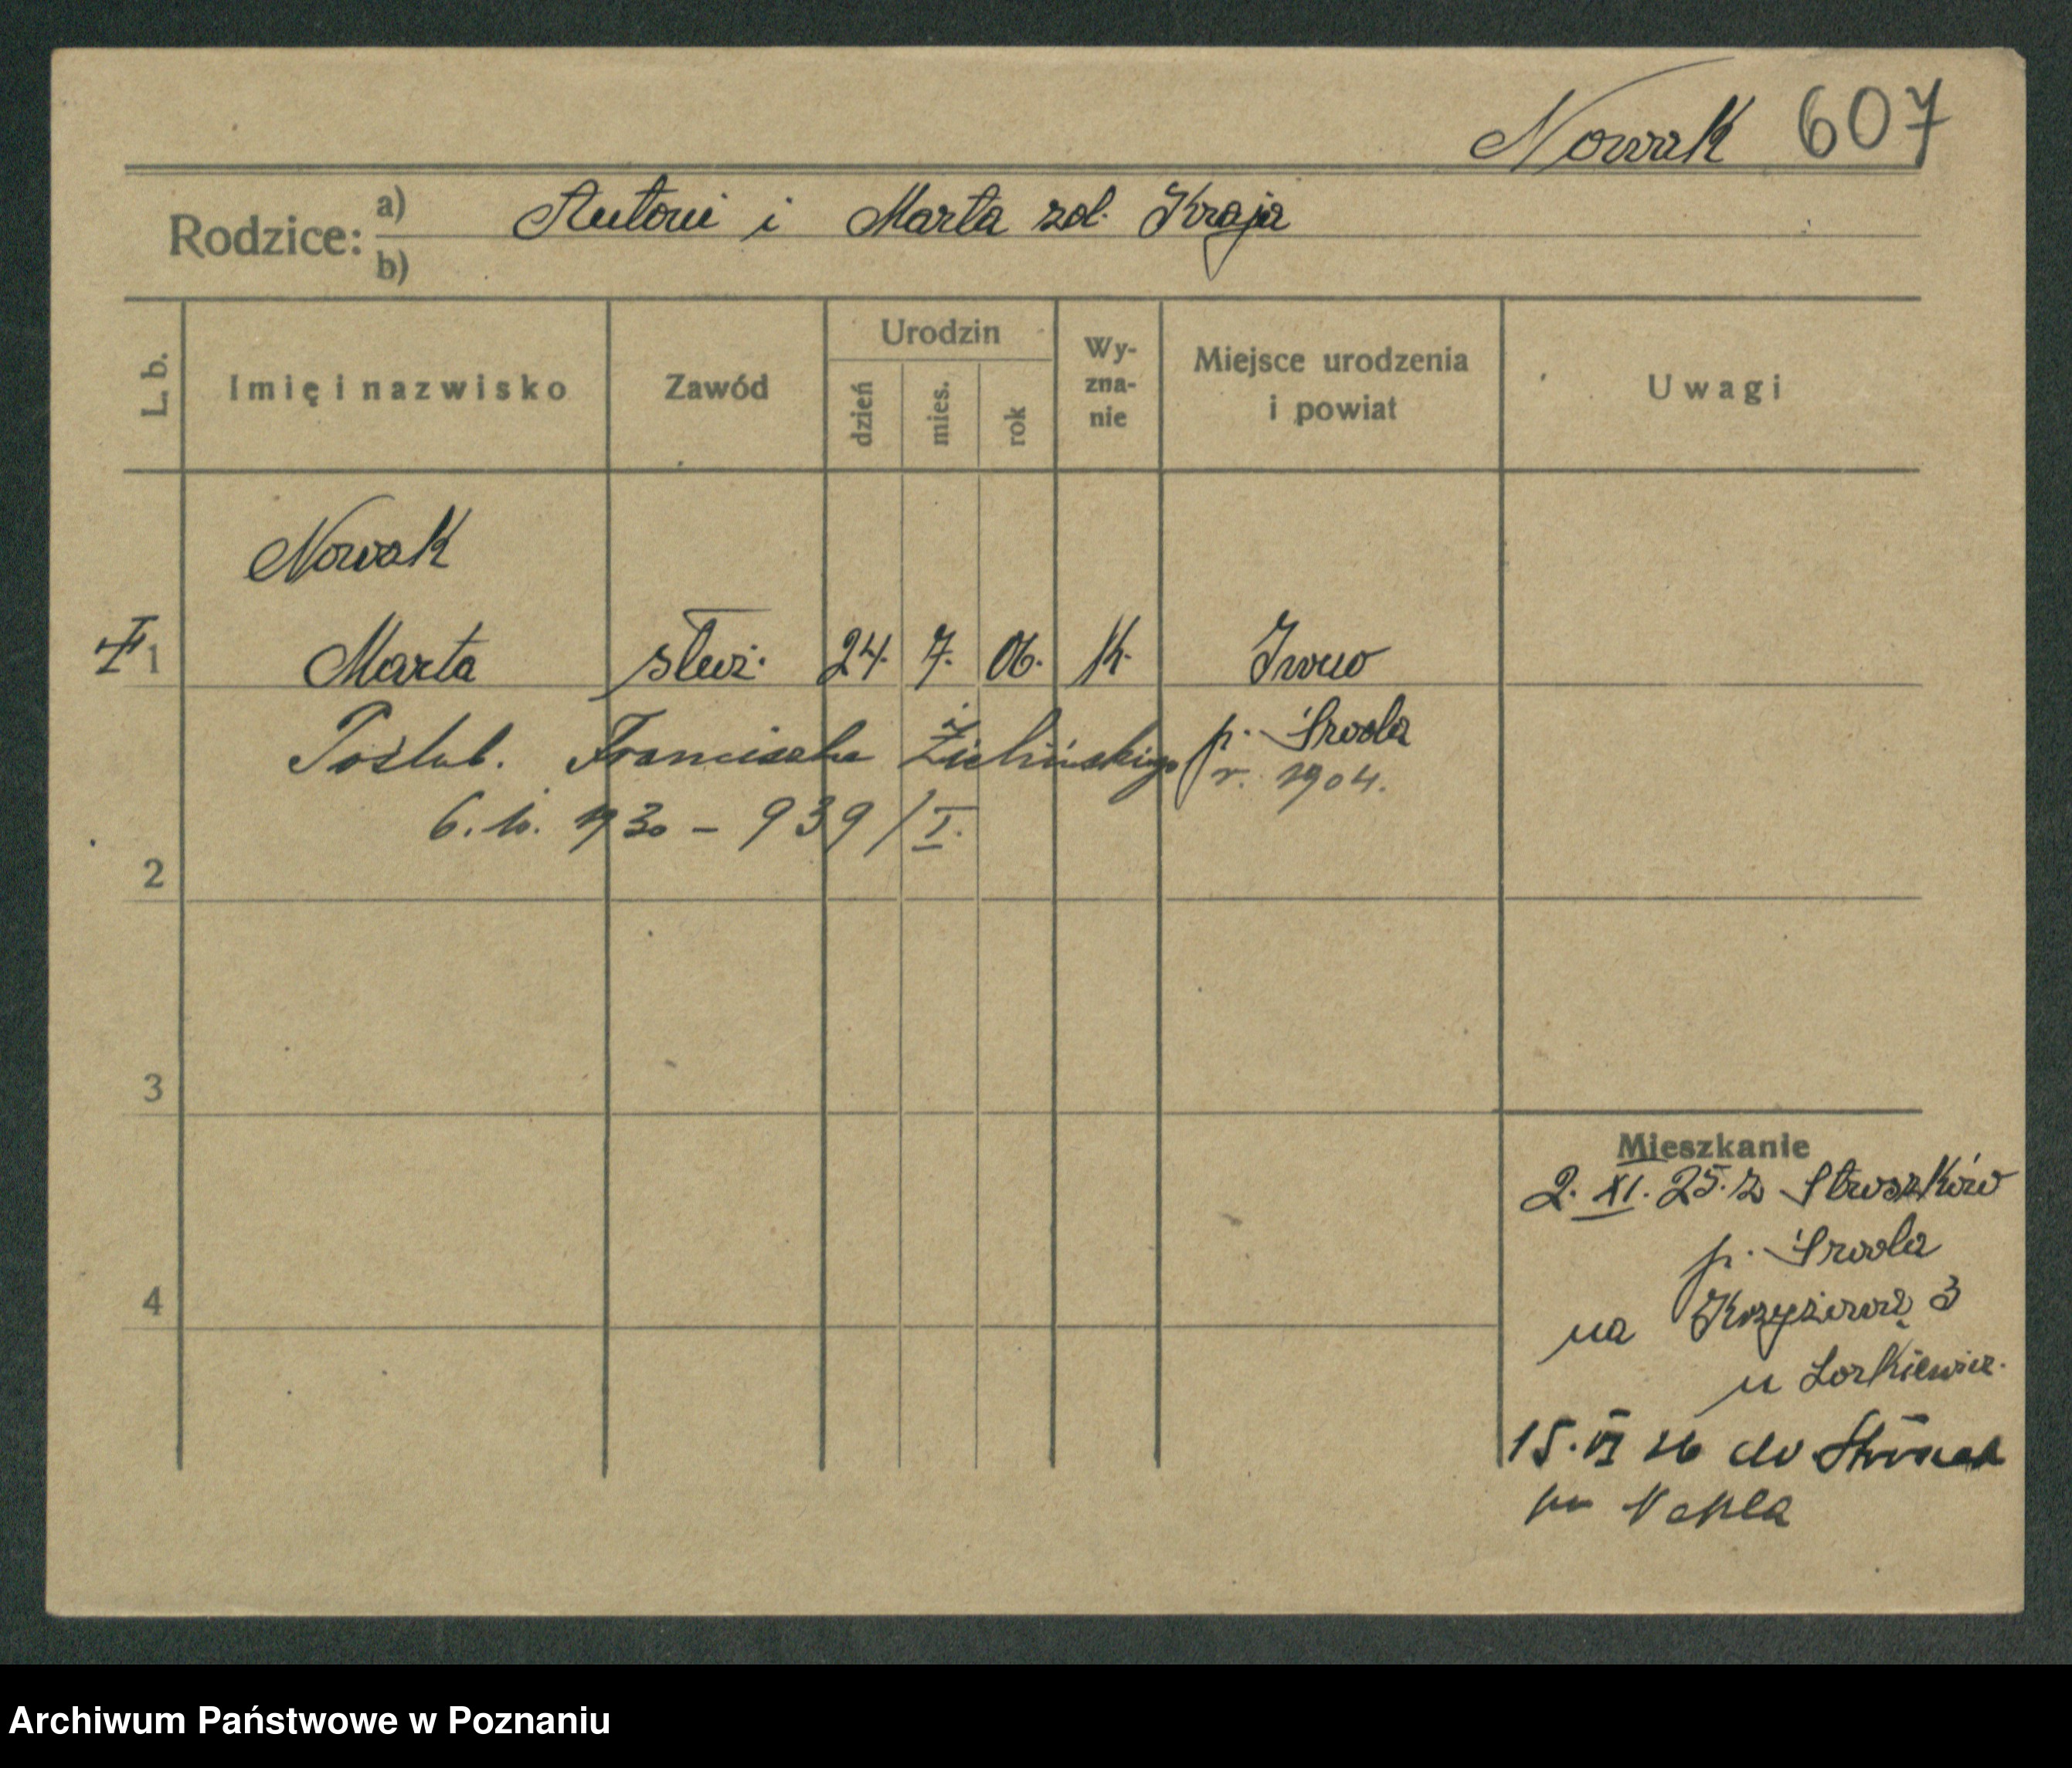 Nowak 607
Rodzice: a) Antoni i Marta zd. Kraja
b)
L. b. Imię i nazwisko Zawód Urodzin dzień mies. rok Wy-zna-nie Miejsce urodzenia i powiat Uwagi
Nowak
1 Marta służ. 24. 7. 06. K. Iwno
Poślub. Franciszka Zielińskiego p. Środa
r. 1904.
6. 10. 1930 – 939/I.
2
3
Mieszkanie
2. XI. 25. z Stroszków
p. Środa
4
na Krzyżową 3
u Lorkiewicz.
15. VI 26 do
Nekla
Archiwum Państwowe w Poznaniu